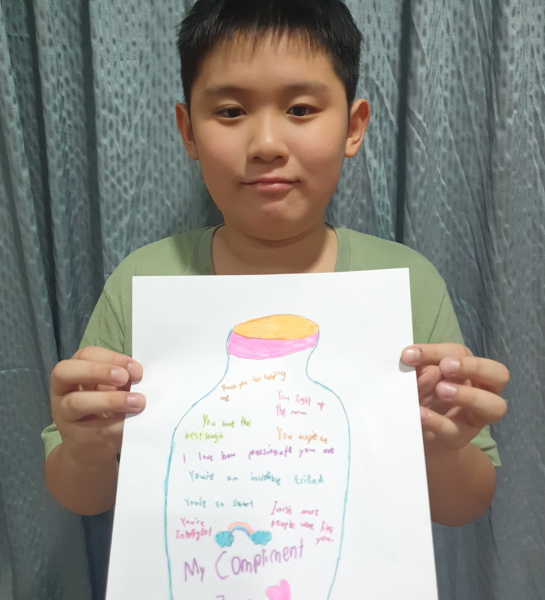 Thank you for helping
me
You light up
the room
You have the
best laugh
You inspire me
I love how passionate you are
You're an incredible friend
You're so smart
I wish more
people were like
you
You're
Intelligent
My Compliment